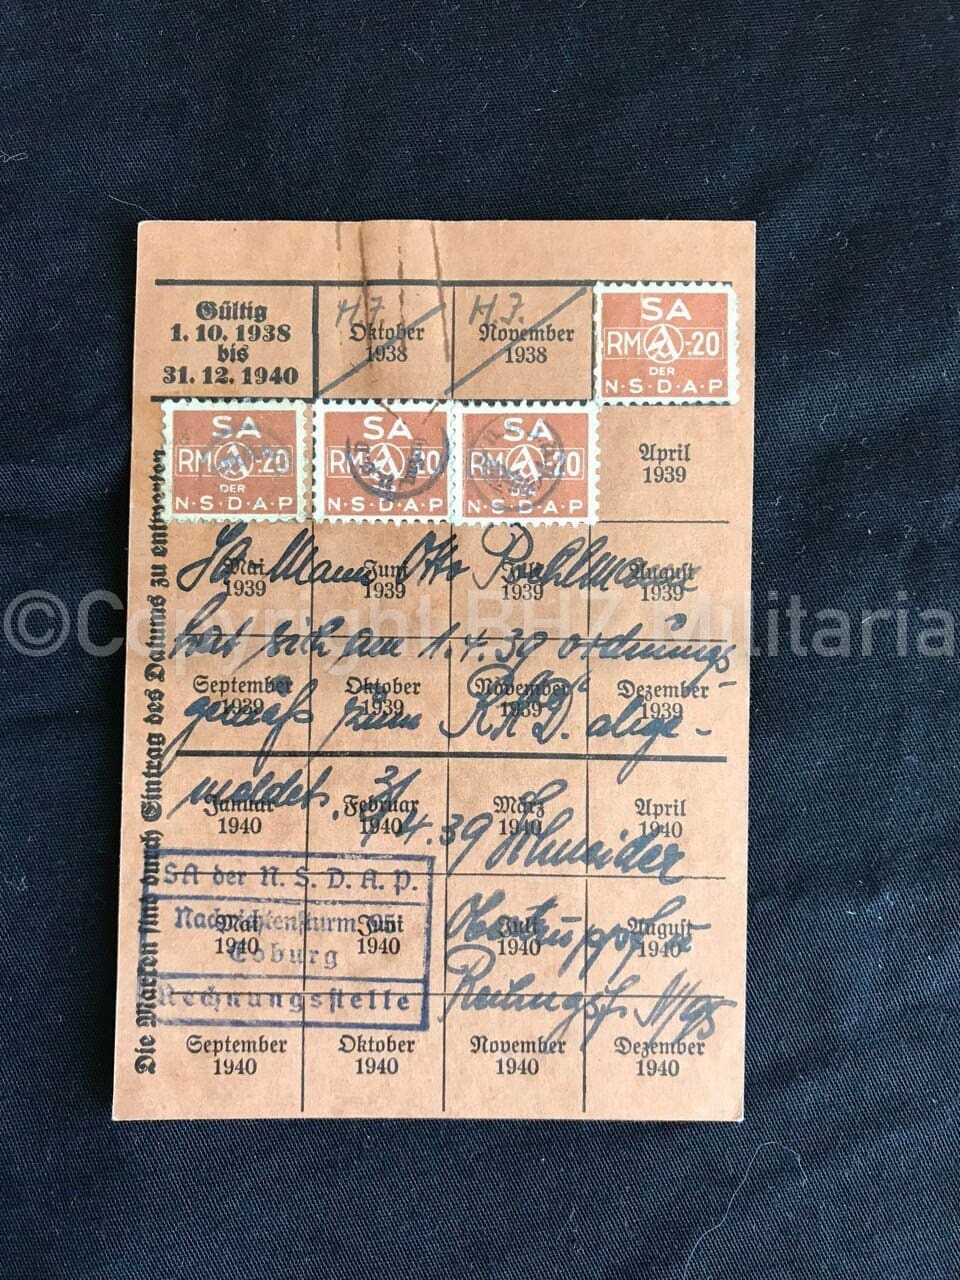 Gültig
1. 10. 1938
bis
31. 12. 1940
H.J.
Oktober
1938
H.J.
November
1938
SA
RM -.20
DER
N·S·D·A·P
SA
RM -.20
DER
N·S·D·A·P
SA
RM -.20
DER
N·S·D·A·P
SA
RM -.20
DER
N·S·D·A·P
April
1939
Mai
1939
Juni
1939
Juli
1939
August
1939
September
1939
Oktober
1939
November
1939
Dezember
1939
Januar
1940
Februar
1940
März
1940
April
1940
Mai
1940
Juni
1940
Juli
1940
August
1940
September
1940
Oktober
1940
November
1940
Dezember
1940
Die Marken sind durch Eintrag des Datums zu entwerten
Mann Otto
hat sich am 1.4.39 ordnungs-
gemäß zum R.A.D. abge-
meldet. 3/4.39 Schneider
Rechnungsf. N/95
SA der N. S. D. A. P.
Nachrichtensturm 95
Coburg
Rechnungsstelle
©Copyright BHZ Militaria